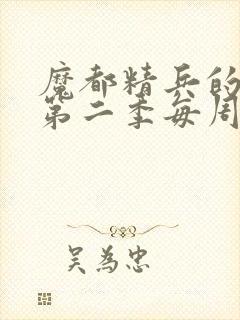 魔都精兵的
第二季每周
吴为忠